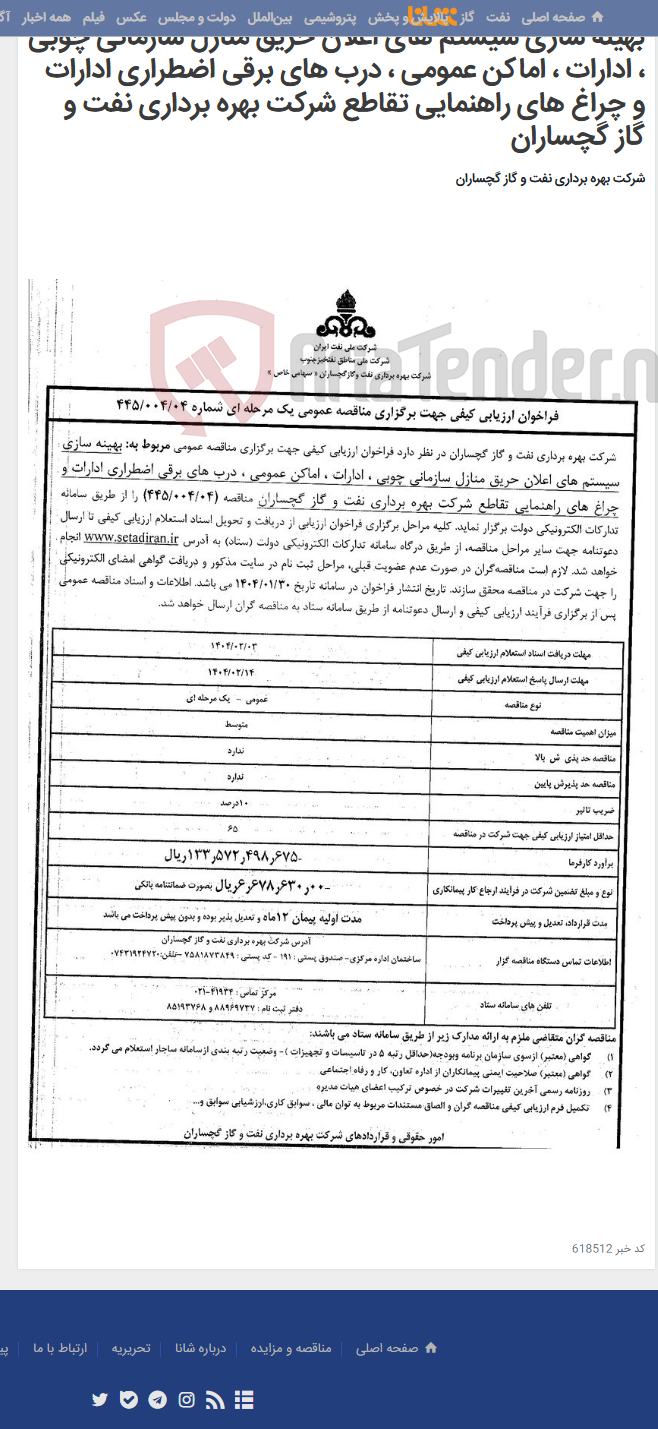 صفحه اصلی نفت گاز پالایش و پخش پتروشیمی بین‌الملل دولت و مجلس عکس فیلم همه اخبار
بهینه سازی سیستم های اعلان حریق منازل سازمانی چوبی
، ادارات ، اماکن عمومی ، درب های برقی اضطراری ادارات
و چراغ های راهنمایی تقاطع شرکت بهره برداری نفت و
گاز گچساران
شرکت بهره برداری نفت و گاز گچساران
شرکت ملی نفت ایران
شرکت ملی مناطق نفتخیز جنوب
شرکت بهره برداری نفت و گاز گچساران « سهامی خاص »
AriaTender.n
فراخوان ارزیابی کیفی جهت برگزاری مناقصه عمومی یک مرحله ای شماره ۴۴۵/۰۰۴/۰۴
شرکت بهره برداری نفت و گاز گچساران در نظر دارد فراخوان ارزیابی کیفی جهت برگزاری مناقصه عمومی مربوط به: بهینه سازی
سیستم های اعلان حریق منازل سازمانی چوبی ، ادارات ، اماکن عمومی ، درب های برقی اضطراری ادارات و
چراغ های راهنمایی تقاطع شرکت بهره برداری نفت و گاز گچساران مناقصه (۴۴۵/۰۰۴/۰۴) را از طریق سامانه
تدارکات الکترونیکی دولت برگزار نماید. کلیه مراحل برگزاری فراخوان ارزیابی از دریافت و تحویل اسناد استعلام ارزیابی کیفی تا ارسال
دعوتنامه جهت سایر مراحل مناقصه، از طریق درگاه سامانه تدارکات الکترونیکی دولت (ستاد) به آدرس www.setadiran.ir انجام
خواهد شد. لازم است مناقصه‌گران در صورت عدم عضویت قبلی، مراحل ثبت نام در سایت مذکور و دریافت گواهی امضای الکترونیکی
را جهت شرکت در مناقصه محقق سازند. تاریخ انتشار فراخوان در سامانه تاریخ ۱۴۰۴/۰۱/۳۰ می باشد. اطلاعات و اسناد مناقصه عمومی
پس از برگزاری فرآیند ارزیابی کیفی و ارسال دعوتنامه از طریق سامانه ستاد به مناقصه گران ارسال خواهد شد.
مهلت دریافت اسناد استعلام ارزیابی کیفی ۱۴۰۴/۰۲/۰۳
مهلت ارسال پاسخ استعلام ارزیابی کیفی ۱۴۰۴/۰۲/۱۴
نوع مناقصه عمومی - یک مرحله ای
میزان اهمیت مناقصه متوسط
مناقصه حد پذی ش بالا ندارد
مناقصه حد پذیرش پایین ندارد
ضریب تاثیر ۱۰درصد
حداقل امتیاز ارزیابی کیفی جهت شرکت در مناقصه ۶۵
برآورد کارفرما ۱۳۳٫۵۷۲٫۴۹۸٫۶۷۵-ریال
نوع و مبلغ تضمین شرکت در فرآیند ارجاع کار پیمانکاری ۶٫۶۷۸٫۶۳۰٫۰۰۰-ریال بصورت ضمانتنامه بانکی
مدت قرارداد، تعدیل و پیش پرداخت مدت اولیه پیمان ۱۲ماه و تعدیل پذیر بوده و بدون پیش پرداخت می باشد
اطلاعات تماس دستگاه مناقصه گزار آدرس شرکت بهره برداری نفت و گاز گچساران
ساختمان اداره مرکزی- صندوق پستی : ۱۹۱ - کد پستی : ۷۵۸۱۸۷۳۸۴۹ –تلفن:۰۷۴۳۱۹۲۴۷۲۰
تلفن های سامانه ستاد مرکز تماس : ۴۱۹۳۴-۰۲۱
دفتر ثبت نام : ۸۸۹۶۹۷۳۷ و ۸۵۱۹۳۷۶۸
مناقصه گران متقاضی ملزم به ارائه مدارک زیر از طریق سامانه ستاد می باشند:
۱) گواهی (معتبر) ازسوی سازمان برنامه وبودجه(حداقل رتبه ۵ در تاسیسات و تجهیزات )- وضعیت رتبه بندی ازسامانه ساجار استعلام می گردد.
۲) گواهی (معتبر) صلاحیت ایمنی پیمانکاران از اداره تعاون، کار و رفاه اجتماعی
۳) روزنامه رسمی آخرین تغییرات شرکت در خصوص ترکیب اعضای هیات مدیره
۴) تکمیل فرم ارزیابی کیفی مناقصه گران و الصاق مستندات مربوط به توان مالی ، سوابق کاری،ارزشیابی سوابق و...
امور حقوقی و قراردادهای شرکت بهره برداری نفت و گاز گچساران
کد خبر 618512
صفحه اصلی مناقصه و مزایده درباره شانا تحریریه ارتباط با ما